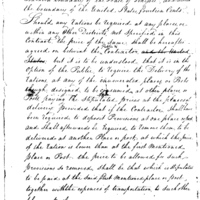 the boundary of the United States
Should any Rations be required at any place or
within other Districts not specified in this
Contract the price of the same shall be hereafter
agreed on between the Contractor
but it is to be understood that it is in the
option of the Public to require the Delivery of
Rations at any of the enumerated places or Posts
designed, to be furnished at other places or
Posts paying the stipulated prices at the place of
delivery provided that if the Contractor shall
been required to deposit Provisions at one place or
and shall afterwards be required to remove them to be
delivered at another Place or post, at which the price
of the ration is lower than at the first mentioned
Place or Post the price to be allowed for such
provisions so removed, shall be that which is stipulated
to be paid at the said first Mentioned place or post,
together with the expenses of transportation to such other